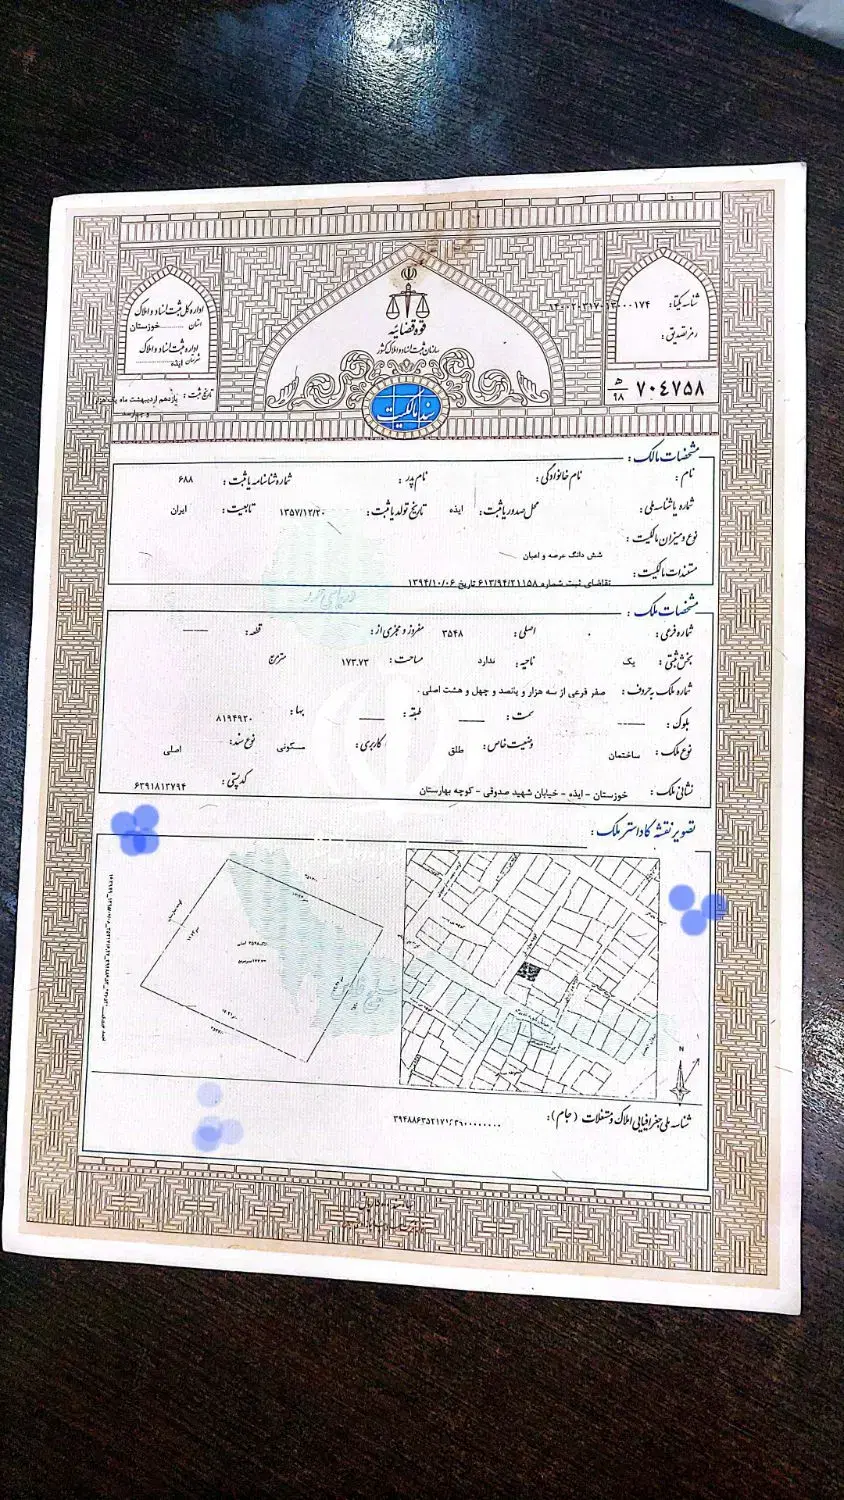 قوه قضائیه
سازمان ثبت اسناد و املاک کشور
اداره کل ثبت اسناد و املاک
استان خوزستان
اداره ثبت اسناد و املاک
شهرستان ایذه
تاریخ ثبت : یازدهم اردیبهشت ماه یک هزار
و چهارصد
شناسه یکتا:
رمز تصدیق :
۷۰۴۷۵۸ ه‍ ۹۸
سند مالکیت
مشخصات مالک :
نام : نام خانوادگی : نام پدر : شماره شناسنامه یا ثبت : ۶۸۸
شماره یا شناسه ملی : محل صدور یا ثبت : ایذه تاریخ تولد یا ثبت : ۱۳۵۷/۱۲/۲۰ تابعیت : ایران
نوع و میزان مالکیت :
شش دانگ عرصه و اعیان
مستندات مالکیت :
تقاضای ثبت شماره ۶۱۳/۹۴/۲۱۱۵۸ تاریخ ۱۳۹۴/۱۰/۰۶
مشخصات ملک :
شماره فرعی : ۰ اصلی : ۳۵۴۸ مفروز و مجزی از : قطعه :
بخش ثبتی : یک ناحیه : ندارد مساحت : ۱۷۳.۷۳ مترمربع
شماره ملک به حروف : صفر فرعی از سه هزار و پانصد و چهل و هشت اصلی .
بلوک : سمت : طبقه : بها : ۸۱۹۴۹۲۰
نوع ملک : ساختمان وضعیت خاص : طلق کاربری : مسکونی نوع سند : اصلی
نشانی ملک : خوزستان - ایذه - خیابان شهید صدوقی - کوچه بهارستان کد پستی : ۶۳۹۱۸۱۳۷۹۴
تصویر نقشه کاداستر ملک :
N
شناسه ملی جغرافیایی املاک و مستغلات (جام) :